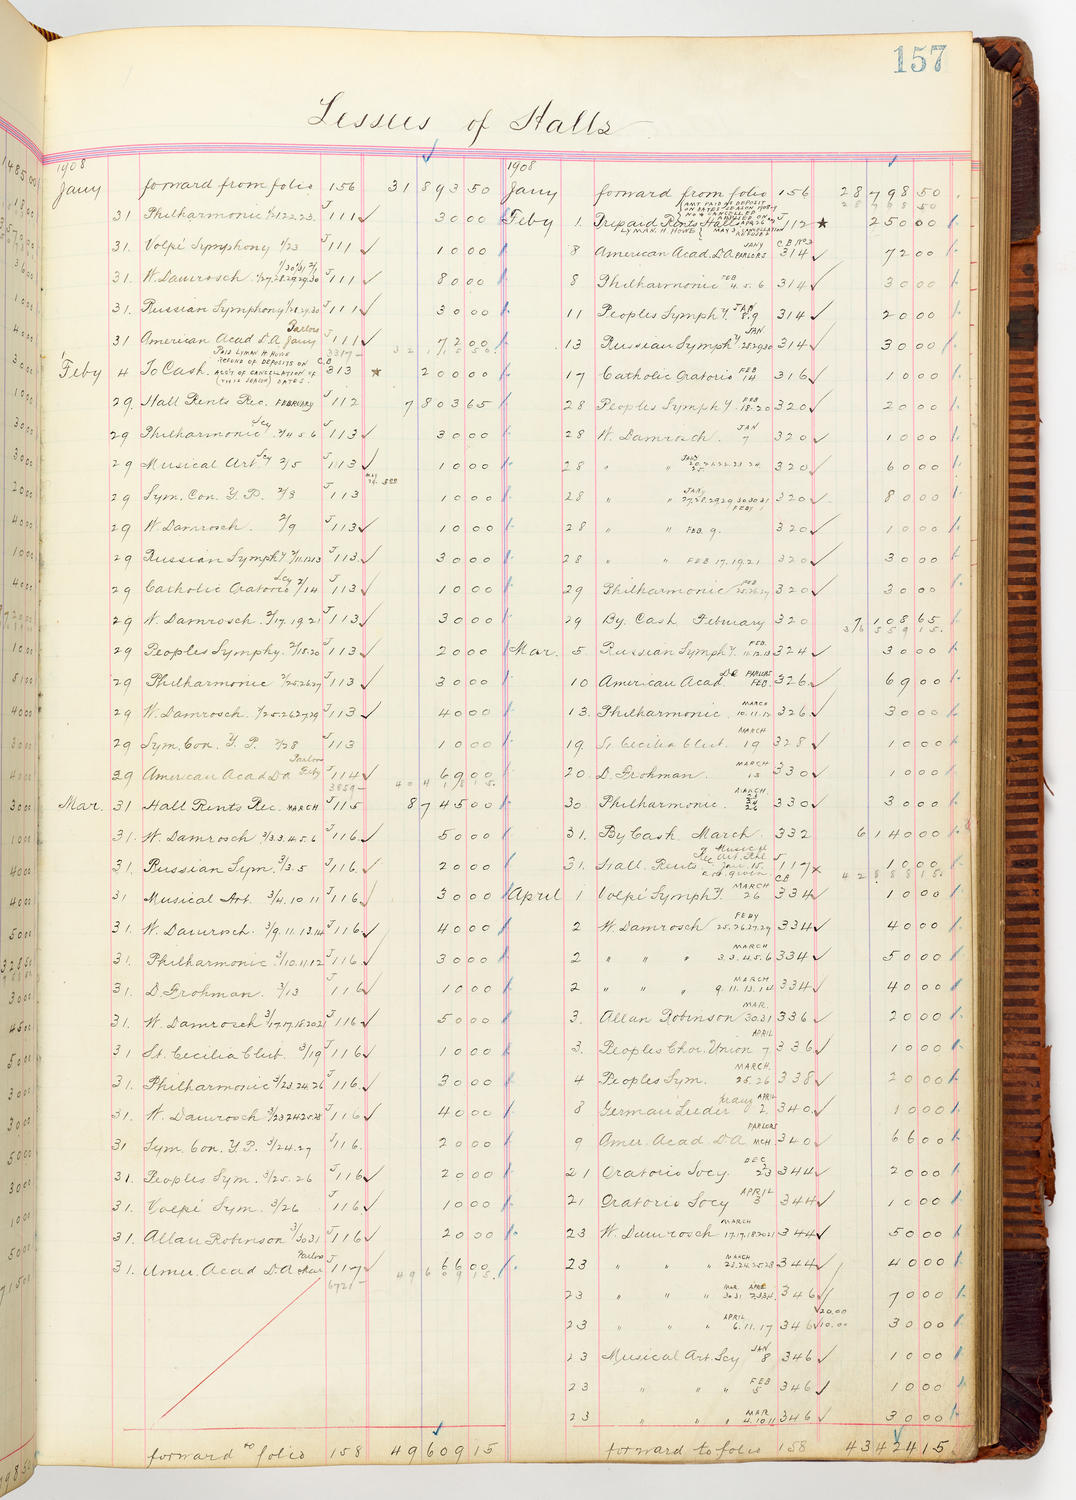 157
Lessees of Halls
1908
Jany forward from folio 156 31 893 50
31 Philharmonic 1/21.22.23. J 111 ✓ 30 00
31. Volpé Symphony 1/23 J 111 ✓ 10 00
1/30 1/31 2/1
31. W. Damrosch. 1/27.28.29.29.30 J 111 ✓ 80 00
31. Russian Symphony J 111 ✓ 30 00
Parlors
31 American Acad D.A. Jany J 111 ✓ 72 00
3217- 32 115 50
Feby 4 To Cash. PAID LYMAN H. HOWE C.B. 313 ★ 200 00
REFUND OF DEPOSITS ON
ACC'T OF CANCELLATION OF
(THIS SEASON) DATES.
29. Hall Rents Rec. FEBRUARY J 112 7 803 65
29 Philharmonic Scy 2/4 5 6 J 113 ✓ 30 00
29 Musical Art Scy 2/5 J 113 ✓ 10 00
29 Sym. Con. Y.P. 2/8 J 113 10 00
29 W. Damrosch. 2/9 J 113 ✓ 10 00
29 Russian Symphy 2/11.12.13 J 113 ✓ 30 00
29 Catholic Oratorio Scy 2/14 J 113 ✓ 10 00
29 W. Damrosch. 2/17.19.21 J 113 ✓ 30 00
29 Peoples Symphy. 2/18.20 J 113 ✓ 20 00
29 Philharmonic 2/25.26.27 J 113 ✓ 30 00
29 W. Damrosch. 2/25.26.27.29 J 113 ✓ 40 00
29 Sym. Con. Y.P. 2/28 J 113 10 00
Parlors
29 American Acad D A Feby J 114 ✓ 69 00
3859- 40 418 15.
Mar. 31 Hall Rents Rec. MARCH J 115 8 745 00
31. W. Damrosch 3/3.3.4.5.6 J 116 ✓ 50 00
31. Russian Sym. 3/3.5 J 116. ✓ 20 00
31 Musical Art. 3/4.10 11 J 116 ✓ 30 00
31. W. Damrosch. 3/9.11.13.14 J 116 ✓ 40 00
31. Philharmonic 3/10.11.12 J 116 ✓ 30 00
31. D. Frohman. 3/13 J 116 ✓ 10 00
31. W. Damrosch 3/17.17.18.20.21 J 116 ✓ 50 00
31 St. Cecilia Club. 3/19 J 116 ✓ 10 00
31. Philharmonic 3/23.24.26 J 116 ✓ 30 00
31. W. Damrosch 3/23 24 25.28 J 116 ✓ 40 00
31 Sym. Con. Y.P. 3/24.27 J 116. 20 00
31. Peoples Sym. 3/25.26 J 116 ✓ 20 00
31. Volpé Sym. 3/26 J 116 ✓ 10 00
31. Allan Robinson 3/30 31 J 116 ✓ 20 00
Parlors
31. Amer. Acad D.A. Mar J 117 ✓ 66 00
6721- 49 609 15.
forward to folio 158 49 609 15
1908
Jany forward from folio 156 28 798 50
28 798 50
Feby 1. Prepaid Rents Halls J 112 ★ 250 00
LYMAN H. HOWE
AMT PAID AS DEPOSIT
ON DATES SEASON 1908-9
NOW CANCELLED
MAY 3 CANCELLATION
REFUSED
C.B. No 2
8 American Acad. D.A. JANY PARLORS 314 ✓ 72 00
8 Philharmonic FEB 4.5.6 314 ✓ 30 00
11 Peoples Symphy. JAN 8.9 314 ✓ 20 00
13 Russian Symphy. JAN. 28.29.30 314 ✓ 30 00
17 Catholic Oratorio FEB 14 316 ✓ 10 00
28 Peoples Symphy. FEB 18-20 320 ✓ 20 00
28 W. Damrosch. JAN 7 320 ✓ 10 00
28 " " JANY 320 ✓ 60 00
28 " " JANY 27.28.29.29 30 30 31 FEBY 1 320 ✓ 80 00
28 " " FEB. 9. 320 ✓ 10 00
28 " " FEB 17.19.21 320 ✓ 30 00
29 Philharmonic FEB 25.26.27 320 ✓ 30 00
29 By Cash February 320 7 108 65
36 559 15.
Mar. 5 Russian Symphy. FEB. 11.12.13 324 ✓ 30 00
10 American Acad. D A PARLORS FEB. 326 ✓ 69 00
13. Philharmonic MARCH 10.11.12 326 ✓ 30 00
19. St. Cecilia Club. MARCH 19 328 ✓ 10 00
20. D. Frohman. MARCH 13 330 ✓ 10 00
30 Philharmonic. MARCH 23 24 26 330 ✓ 30 00
31. By Cash March. 332 6 140 00
31. Hall Rents J 117 x 10 00
C.B. 42 888 15.
April 1 Volpé Symphy. MARCH 26 334 ✓ 10 00
2 W. Damrosch FEBY 25.26.27.29 334 ✓ 40 00
2 " " " MARCH 3.3.4.5.6 334 ✓ 50 00
2 " " " MARCH 9.11.13.14 334 ✓ 40 00
3. Allan Robinson MAR. 30.31 336 ✓ 20 00
3. Peoples Chor. Union APRIL 7 336 ✓ 10 00
4 Peoples Sym. MARCH. 25.26 338 ✓ 20 00
8 German Lieder APRIL 2. 340 ✓ 10 00
9 Amer. Acad D A PARLORS MCH. 340 ✓ 66 00
21 Oratorio Socy. DEC 344 ✓ 20 00
21 Oratorio Socy APRIL 3 344 ✓ 10 00
23 W. Damrosch MARCH 17.17.18 20 21 344 ✓ 50 00
23 " " " MARCH 23.24.25.28 344 ✓ 40 00
23 " " " MAR. 30.31 APRIL 346 ✓ 70 00
20.00
23 " " " APRIL 6.11.17 346 ✓ 10.00 30 00
23 Musical Art. Scy JAN 8 346 ✓ 10 00
23 " " " FEB 5 346 ✓ 10 00
23 " " " MAR 4.10 11 346 ✓ 30 00
forward to folio 158 43 424 15.